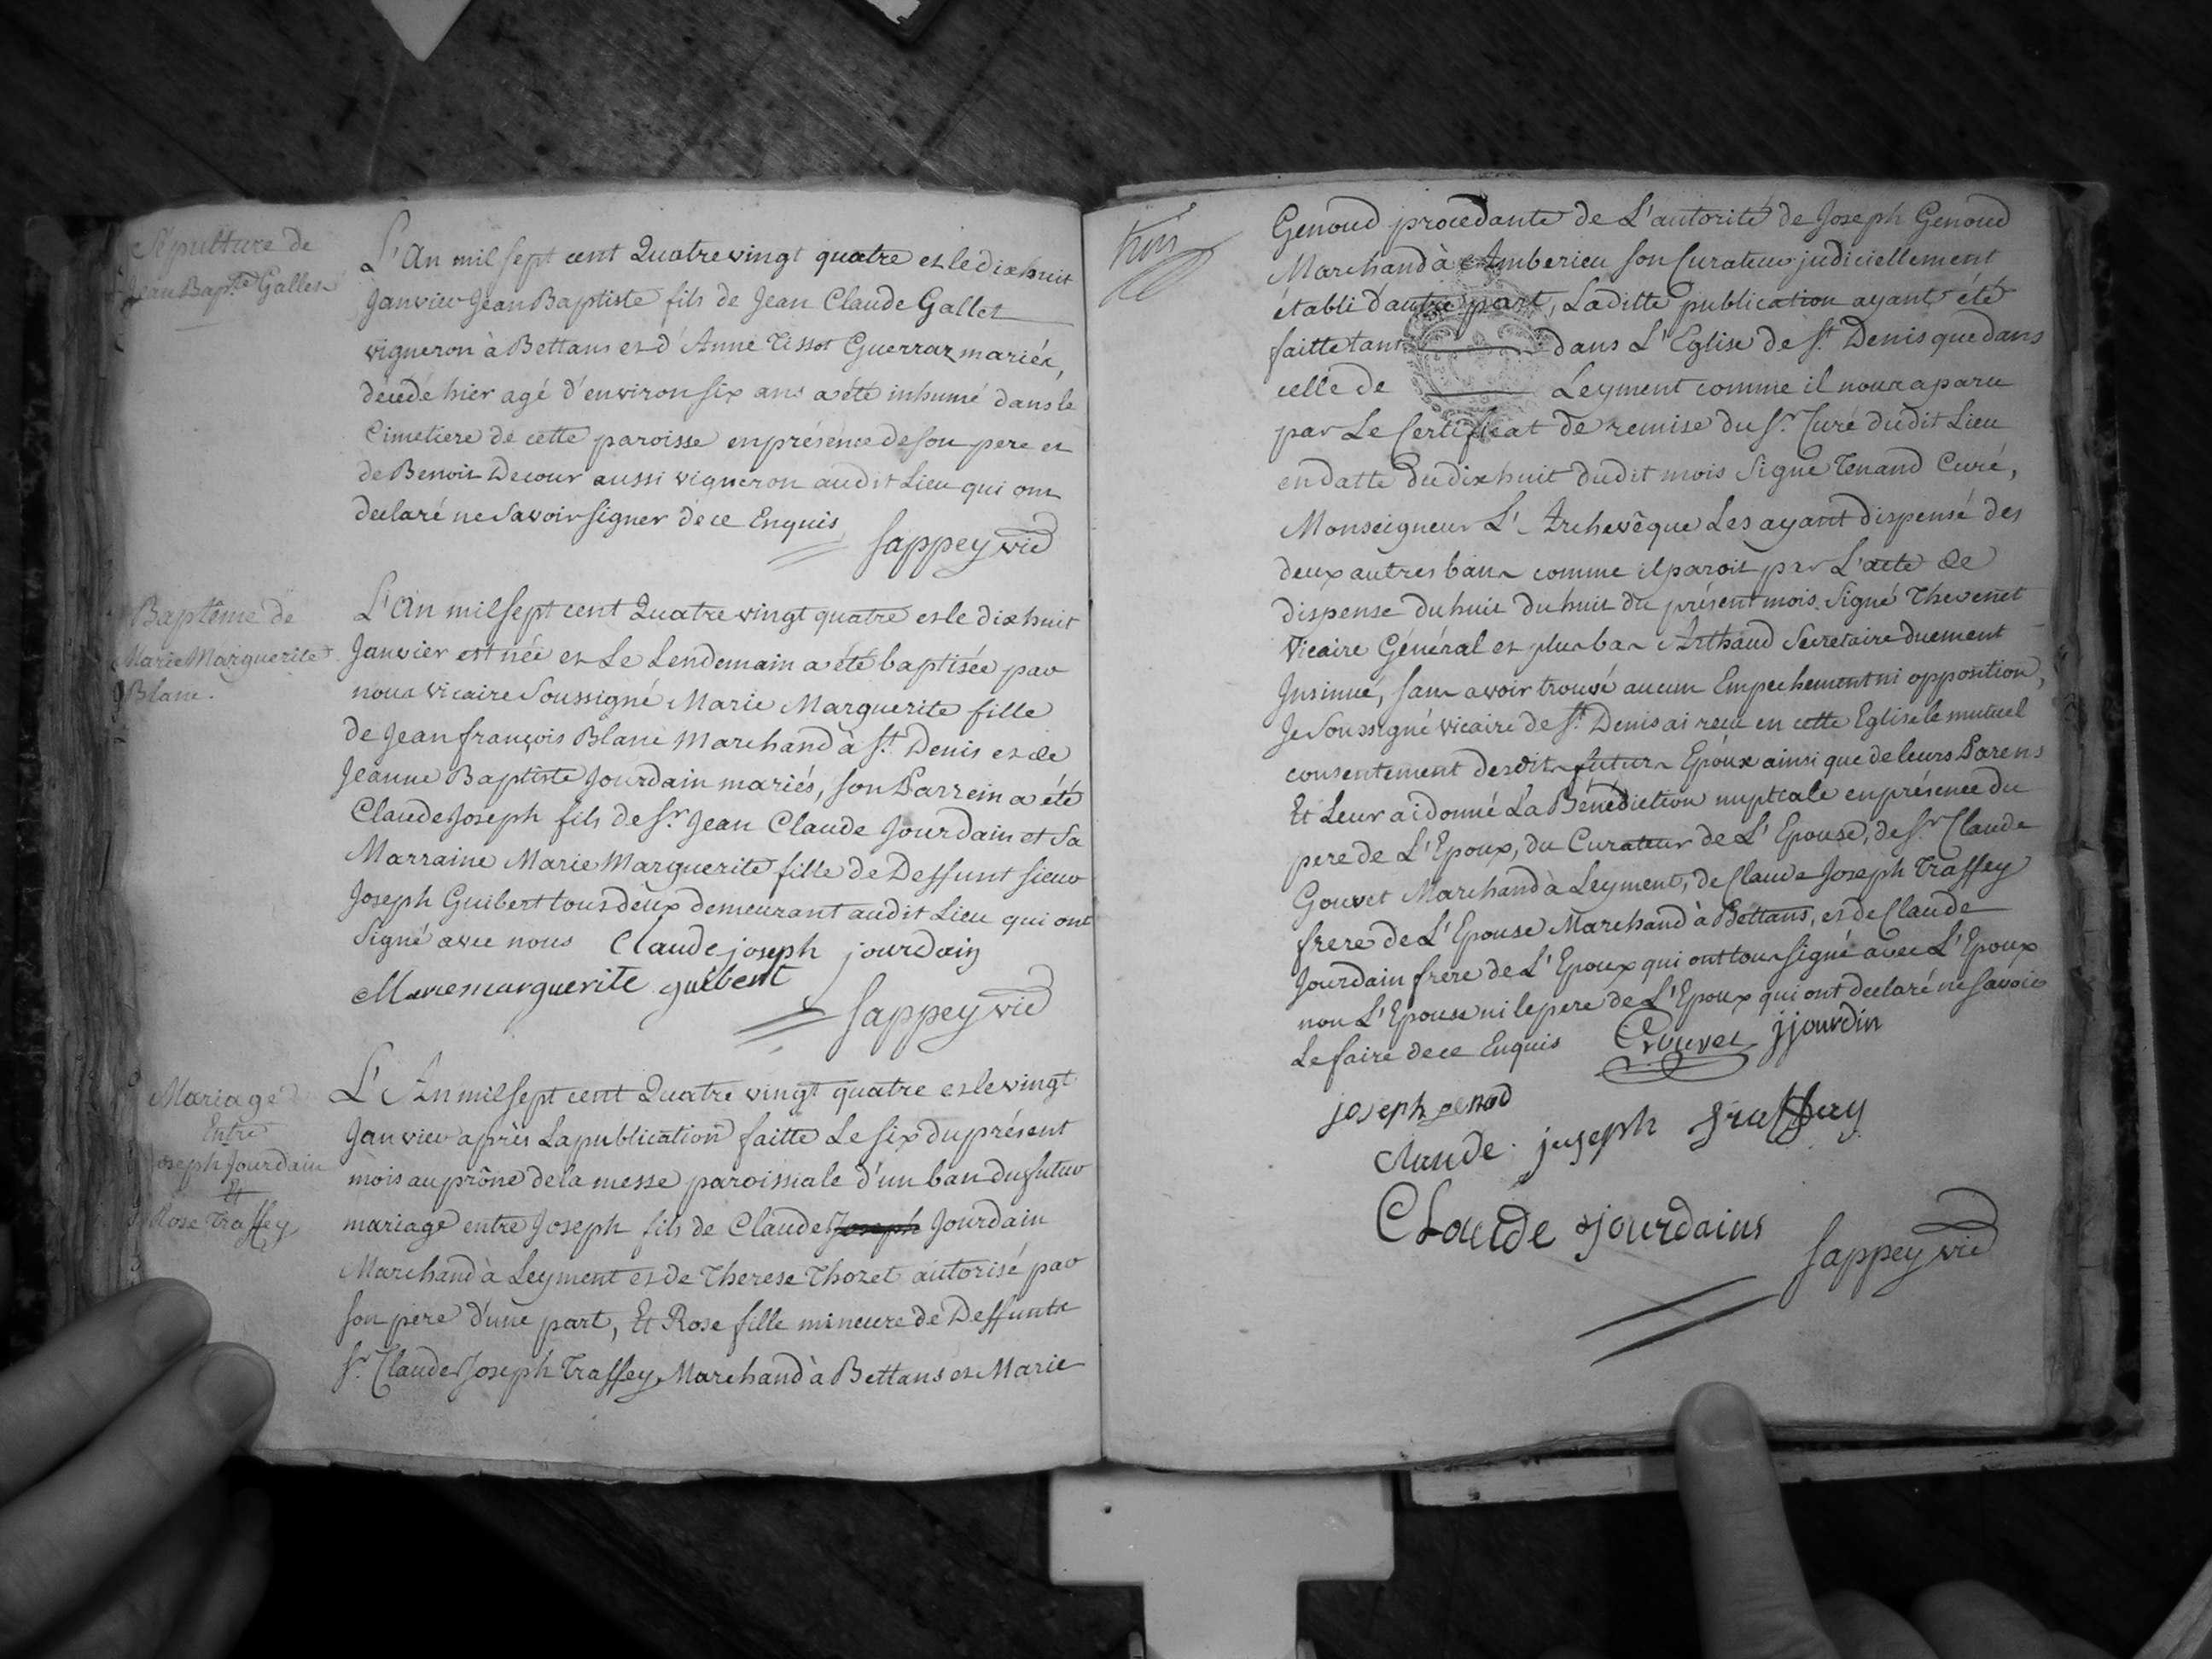 Sépulture de
Jean Bap.te Gallet
L'An mil sept cent Quatre vingt quatre et le dix huit
Janvier Jean Baptiste fils de Jean Claude Gallet
vigneron à Bettans et d'Anne Tissot Guerraz mariés,
décédé hier agé d'environ six ans a été inhumé dans le
Cimetiere de cette paroisse en présence de son pere et
de Benoit Decour aussi vigneron audit Lieu qui ont
declaré ne Savoir signer de ce Enquis
Sappey vic
Baptême de
Marie Marguerite
Blanc.
L'An mil sept cent Quatre vingt quatre et le dix huit
Janvier est née et Le Lendemain a été baptisée par
nous vicaire Soussigné Marie Marguerite fille
de Jean françois Blanc Marchand à St. Denis et de
Jeanne Baptiste Jourdain mariés, son Parrein a été
Claude Joseph fils de Sr. Jean Claude Jourdain et Sa
Marraine Marie Marguerite fille de Deffunt sieur
Joseph Guibert tous deux demeurant audit Lieu qui ont
Signé avec nous Claude joseph jourdain
Marie marguerite guibert
Sappey vic
Mariage
Entre
Joseph Jourdain
Et
Rose Traffey
L'An mil sept cent Quatre vingt quatre et le vingt
Janvier après La publication faitte Le six du présent
mois au prône de la messe paroissiale d'un ban du futur
mariage entre Joseph fils de Claude Joseph Jourdain
Marchand à Leyment et de Therese Thozet autorisé par
son pere d'une part, Et Rose fille mineure de Deffunts
Sr. Claude Joseph Traffey Marchand à Bettans et Marie
Genoud procedante de L'autorité de Joseph Genoud
Marchand à Amberieu son Curateur judiciellement
établi d'autre part, Laditte publication ayant été
faitte tant dans L'Eglise de St. Denis que dans
celle de Leyment comme il nous a paru
par Le Certificat de remise du Sr. Curé dudit Lieu
en datte du dix huit dudit mois Signé Tenand Curé,
Monseigneur L'Archevêque Les ayant dispensé des
deux autres bans comme il paroit par L'acte de
dispense du huit du huit du présent mois Signé Thevenet
Vicaire Général et plus bas Arthaud Secretaire duement
Insinué, sans avoir trouvé aucun Empechement ni opposition,
Je Soussigné vicaire de St. Denis ai reçu en cette Eglise le mutuel
consentement desdits futurs Epoux ainsi que de leurs Parens
Et Leur ai donné La Bénédiction nuptiale en présence du
pere de L'Epoux, du Curateur de L'Epouse, de Sr. Claude
Gouvet Marchand à Leyment, de Claude Joseph Traffey
frere de L'Epouse Marchand à Bettans, et de Claude
Jourdain frere de L'Epoux qui ont tous signé avec L'Epoux
non L'Epouse ni le pere de L'Epoux qui ont declaré ne Savoir
Le faire de ce Enquis Gouvet jjourdin
joseph genod
Claude joseph traffey
Claude jourdains
Sappey vic